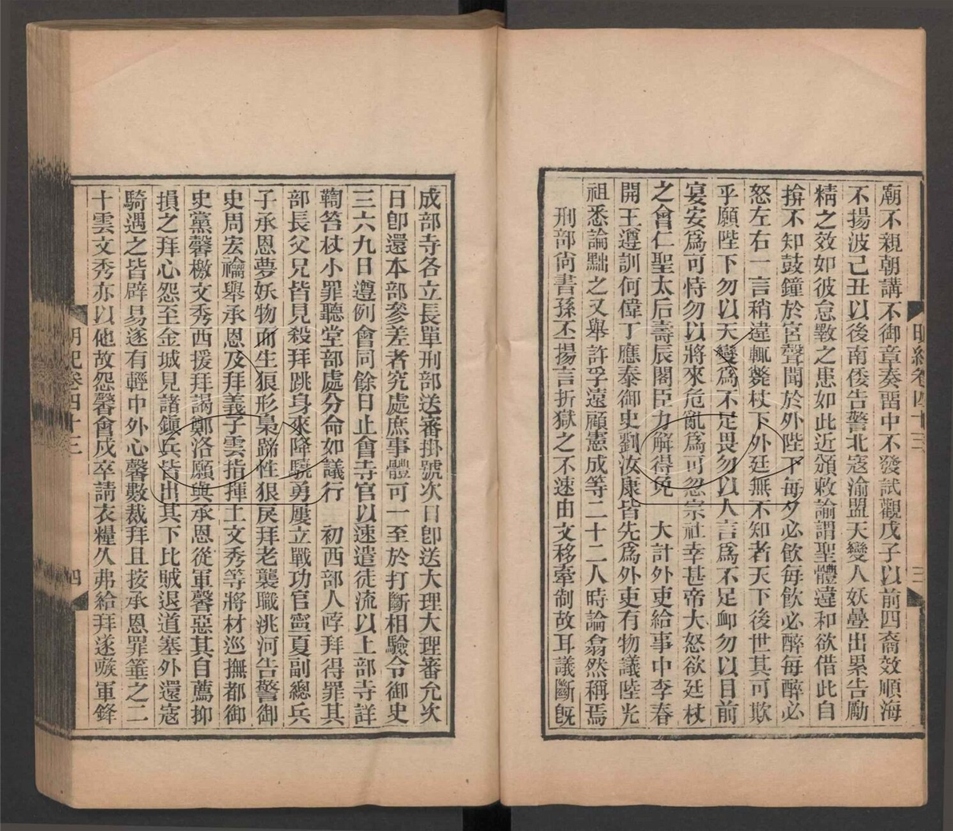 廟不親朝講不御章奏畱中不發試觀戊子以前四裔效順海
不揚波己丑以後南倭告警北寇渝盟天變人妖疊出累告勵
精之效如彼怠斁之患如此近頒敕諭謂聖體違和欲借此自
揜不知鼓鐘於宮聲聞於外陛下每夕必飲每飲必醉每醉必
怒左右一言稍違輒斃杖下外廷無不知者天下後世其可欺
乎願陛下勿以天變爲不足畏勿以人言爲不足卹勿以目前
宴安爲可恃勿以將來危亂爲可忽宗社幸甚帝大怒欲廷杖
之會仁聖太后壽辰閣臣力解得免 大計外吏給事中李春
開王遵訓何偉丁應泰御史劉汝康皆先爲外吏有物議陸光
祖悉論黜之又舉許孚遠顧憲成等二十二人時論翕然稱焉
刑部尚書孫丕揚言折獄之不速由文移牽制故耳議斷旣
明紀卷四十三 三
成部寺各立長單刑部送審掛號次日卽送大理大理審允次
日卽還本部參差者究處庶事體可一至於打斷相驗令御史
三六九日遵例會同餘日止會寺官以速遣徒流以上部寺詳
鞫笞杖小罪聽堂部處分命如議行 初西部人哱拜得罪其
部長父兄皆見殺拜跳身來降驍勇屢立戰功官寧夏副總兵
子承恩夢妖物而生狼形梟啼性狠戾拜老襲職洮河告警御
史周宏禴舉承恩及拜義子雲指揮土文秀等將材巡撫都御
史黨馨檄文秀西援拜謁鄭洛願與承恩從軍馨惡其自薦抑
損之拜心怨至金城見諸鎭兵皆出其下比賊退道塞外還寇
騎遇之皆辟易遂有輕中外心馨數裁拜且按承恩罪箠之二
十雲文秀亦以他故怨馨會戍卒請衣糧久弗給拜遂嗾軍鋒
明紀卷四十三 四